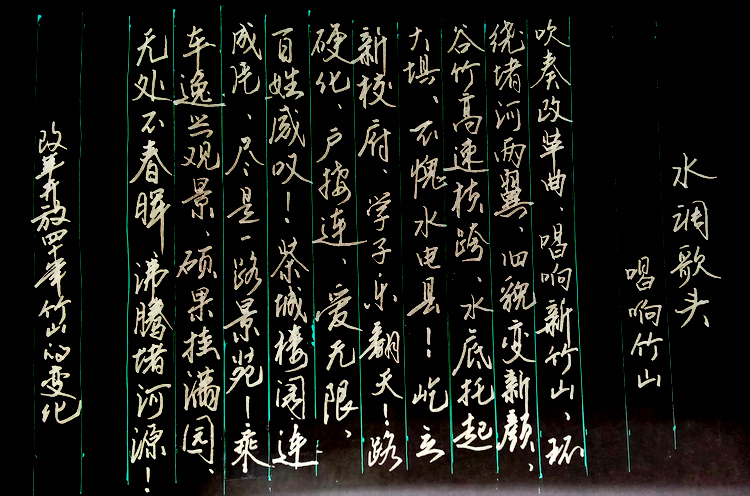 水调歌头
唱响竹山
吹奏改革曲、唱响新竹山、环
绕堵河两翼、旧貌变新颜、
谷竹高速横跨、水底托起
大坝、不愧水电县！屹立
新校府、学子乐翻天！路
硬化、户接连、爱无限、
百姓感叹！茶城楼阁连
成片、尽是一路景苑！乘
车逸兴观景、硕果挂满园、
无处不春晖、沸腾堵河源！
改革开放四十年竹山的变化